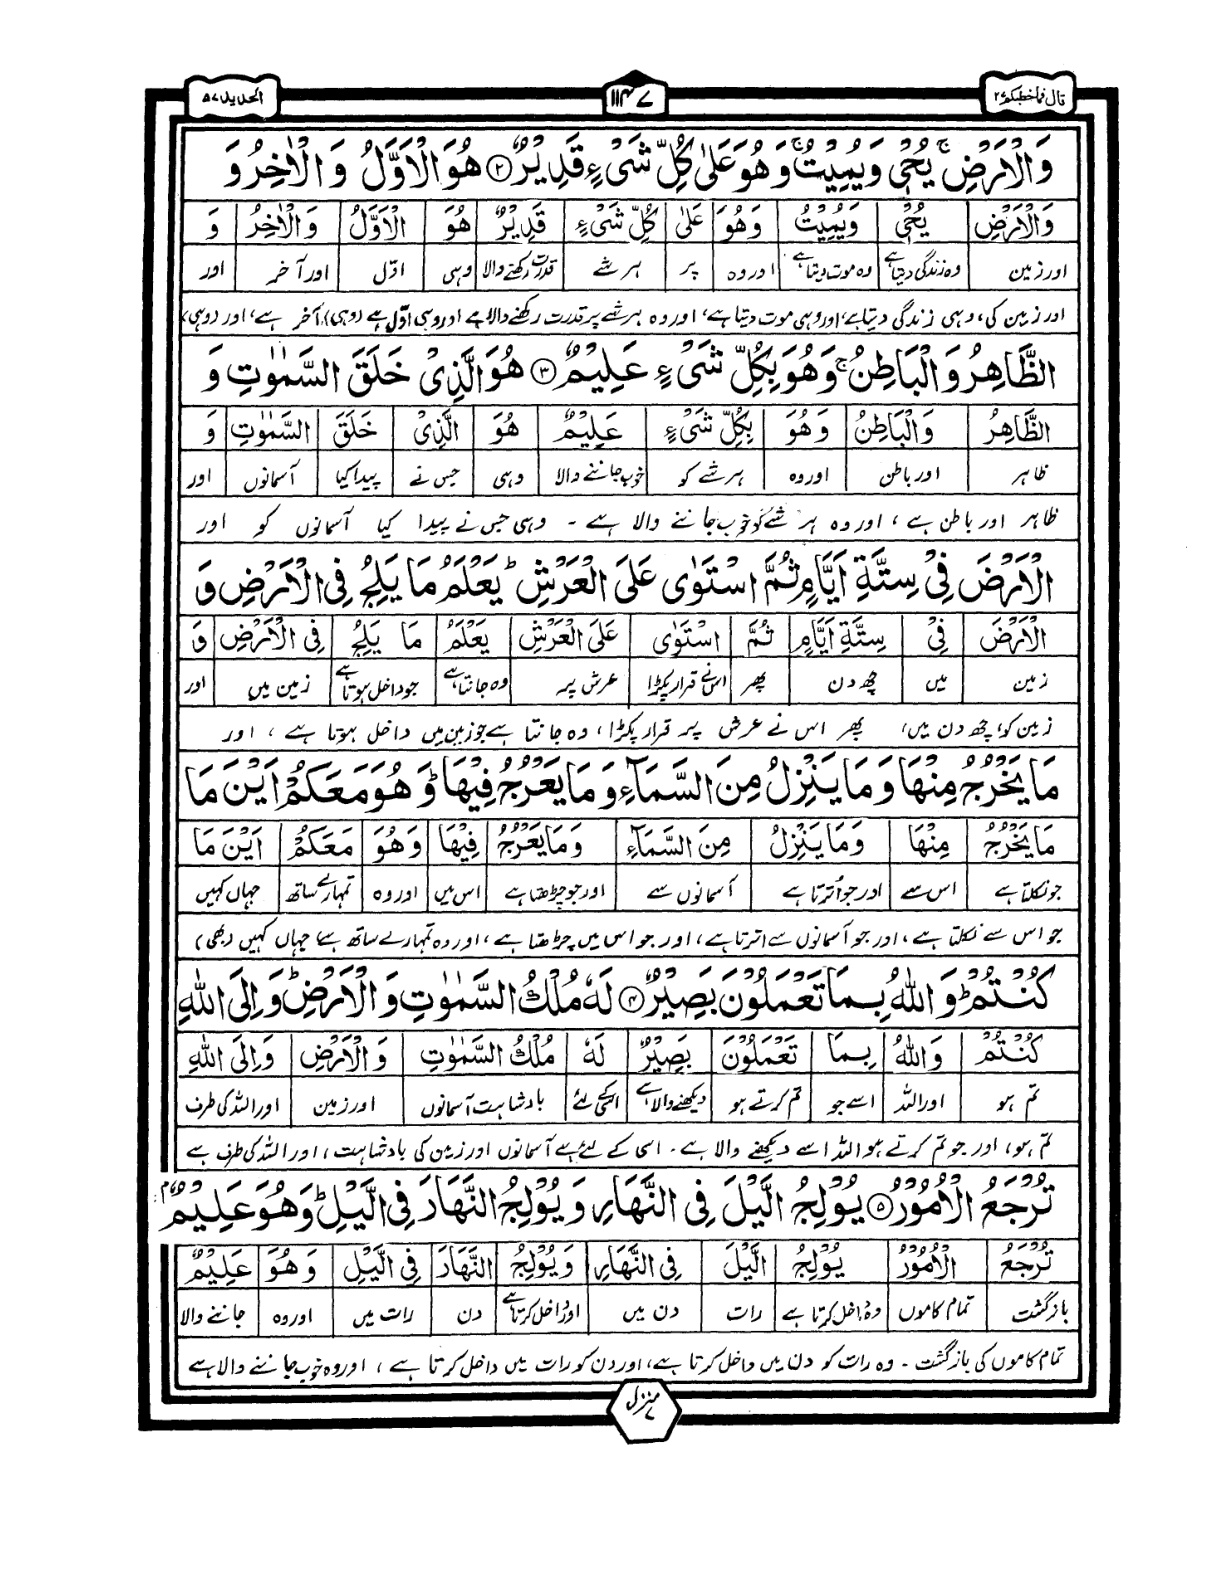 قال فما خطبکم ۲۷
۱۱۴۷
الحدید ۵۷
وَالْاَرْضِ ۚ یُحْیٖ وَیُمِیْتُ ۚ وَهُوَ عَلٰی كُلِّ شَیْءٍ قَدِیْرٌ ۲ هُوَ الْاَوَّلُ وَ الْاٰخِرُ وَ
وَالْاَرْضِ یُحْیٖ وَیُمِیْتُ وَهُوَ عَلٰی كُلِّ شَیْءٍ قَدِیْرٌ هُوَ الْاَوَّلُ وَالْاٰخِرُ وَ
اور زمین وہ زندگی دیتا ہے وہ موت دیتا ہے اور وہ پر ہر شے قدرت رکھنے والا وہی اوّل اور آخر اور
اور زمین کی، وہی زندگی دیتا ہے، اور وہی موت دیتا ہے، اور وہ ہر شے پر قدرت رکھنے والا ہے اور وہی اوّل ہے (وہی) آخر ہے، اور (وہی)
الظَّاهِرُ وَالْبَاطِنُ ۚ وَهُوَ بِكُلِّ شَیْءٍ عَلِیْمٌ ۳ هُوَ الَّذِیْ خَلَقَ السَّمٰوٰتِ وَ
الظَّاهِرُ وَالْبَاطِنُ وَهُوَ بِكُلِّ شَیْءٍ عَلِیْمٌ هُوَ الَّذِیْ خَلَقَ السَّمٰوٰتِ وَ
ظاہر اور باطن اور وہ ہر شے کو خوب جاننے والا وہی جس نے پیدا کیا آسمانوں اور
ظاہر اور باطن ہے ، اور وہ ہر شے کو خوب جاننے والا ہے ۔ وہی جس نے پیدا کیا آسمانوں کو اور
الْاَرْضَ فِیْ سِتَّةِ اَیَّامٍ ثُمَّ اسْتَوٰی عَلَی الْعَرْشِ ؕ یَعْلَمُ مَا یَلِجُ فِی الْاَرْضِ وَ
الْاَرْضَ فِیْ سِتَّةِ اَیَّامٍ ثُمَّ اسْتَوٰی عَلَی الْعَرْشِ یَعْلَمُ مَا یَلِجُ فِی الْاَرْضِ وَ
زمین میں چھ دن پھر اس نے قرار پکڑا عرش پر وہ جانتا ہے جو داخل ہوتا ہے زمین میں اور
زمین کو چھ دن میں، پھر اس نے عرش پر قرار پکڑا، وہ جانتا ہے جو زمین میں داخل ہوتا ہے ، اور
مَا یَخْرُجُ مِنْهَا وَمَا یَنْزِلُ مِنَ السَّمَآءِ وَمَا یَعْرُجُ فِیْهَا ؕ وَهُوَ مَعَكُمْ اَیْنَ مَا
مَا یَخْرُجُ مِنْهَا وَمَا یَنْزِلُ مِنَ السَّمَآءِ وَمَا یَعْرُجُ فِیْهَا وَهُوَ مَعَكُمْ اَیْنَ مَا
جو نکلتا ہے اس سے اور جو اُترتا ہے آسمانوں سے اور جو چڑھتا ہے اس میں اور وہ تمہارے ساتھ جہاں کہیں
جو اس سے نکلتا ہے ، اور جو آسمانوں سے اترتا ہے ، اور جو اس میں چڑھتا ہے ، اور وہ تمہارے ساتھ ہے جہاں کہیں (بھی)
كُنْتُمْ ؕ وَاللّٰهُ بِمَا تَعْمَلُوْنَ بَصِیْرٌ ۴ لَهٗ مُلْكُ السَّمٰوٰتِ وَالْاَرْضِ ؕ وَاِلَی اللّٰهِ
كُنْتُمْ وَاللّٰهُ بِمَا تَعْمَلُوْنَ بَصِیْرٌ لَهٗ مُلْكُ السَّمٰوٰتِ وَالْاَرْضِ وَاِلَی اللّٰهِ
تم ہو اور اللہ اسے جو تم کرتے ہو دیکھنے والا ہے اسکے لئے بادشاہت آسمانوں اور زمین اور اللہ کی طرف
تم ہو، اور جو تم کرتے ہو اللہ اسے دیکھنے والا ہے۔ اسی کے لئے ہے آسمانوں اور زمین کی بادشاہت ، اور اللہ کی طرف ہے
تُرْجَعُ الْاُمُوْرُ ۵ یُوْلِجُ الَّیْلَ فِی النَّهَارِ وَیُوْلِجُ النَّهَارَ فِی الَّیْلِ ؕ وَهُوَ عَلِیْمٌۢ
تُرْجَعُ الْاُمُوْرُ یُوْلِجُ الَّیْلَ فِی النَّهَارِ وَیُوْلِجُ النَّهَارَ فِی الَّیْلِ وَهُوَ عَلِیْمٌ
بازگشت تمام کاموں وہ داخل کرتا ہے رات دن میں اور داخل کرتا ہے دن رات میں اور وہ جاننے والا
تمام کاموں کی بازگشت ۔ وہ رات کو دن میں داخل کرتا ہے، اور دن کو رات میں داخل کرتا ہے ، اور وہ خوب جاننے والا ہے
منزل ۷